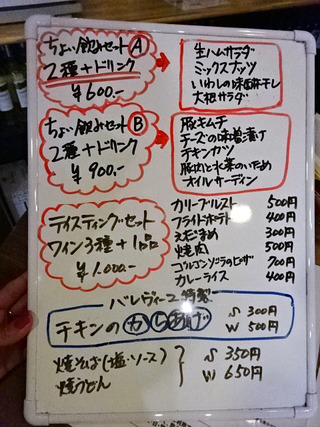 ちょい飲みセット Ⓐ
2種+ドリンク
¥600.-
生ハムサラダ
ミックスナッツ
いわしの味醂干し
大根サラダ
ちょい飲みセット Ⓑ
2種+ドリンク
¥900.-
豚キムチ
チーズの味噌漬け
チキンカツ
豚肉と水菜のいため
オイルサーディン
テイスティングセット
ワイン3種+1品
¥1.000.-
カリーブルスト 500円
フライドポテト 400円
えだまめ 300円
焼肉 500円
ゴルゴンゾーラのピザ 700円
カレーライス 400円
バルヴィーニ特製
チキンのからあげ
S 300円
W 500円
焼そば(塩・ソース)
焼うどん
S 350円
W 650円